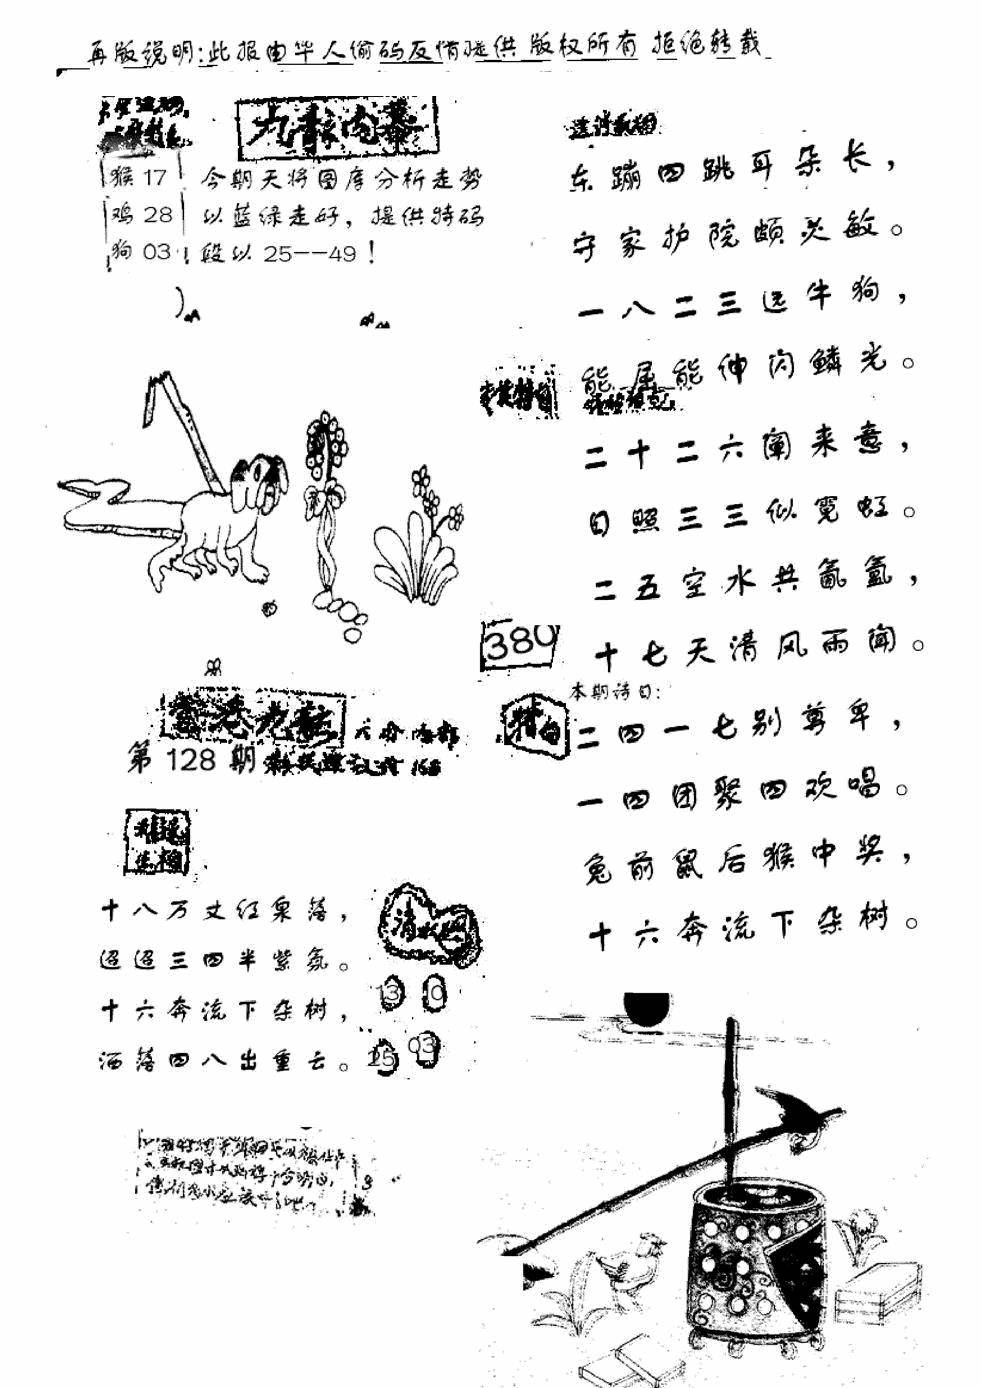 再版说明:此报由华人偷码反情提供 版权所有 拒绝转载
九龙内幕
猴 17
鸡 28
狗 03
今期天将图库分析走势
以蓝绿走好，提供特码
段以 25——49！
东蹦四跳耳朵长，
守家护院颇灵敏。
一八二三远牛狗，
能屈能伸闪鳞光。
二十二六阐来意，
日照三三似霓虹。
二五空水共氤氲，
十七天清风雨闻。
380
本期诗曰:
特
二四一七别尊卑，
一四团聚四欢唱。
兔前鼠后猴中奖，
十六奔流下杂树。
香港九龙
第 128 期
168
十八万丈红泉落，
迢迢三四半紫氛。
十六奔流下杂树，
洒落四八出重云。
13 10
25 03